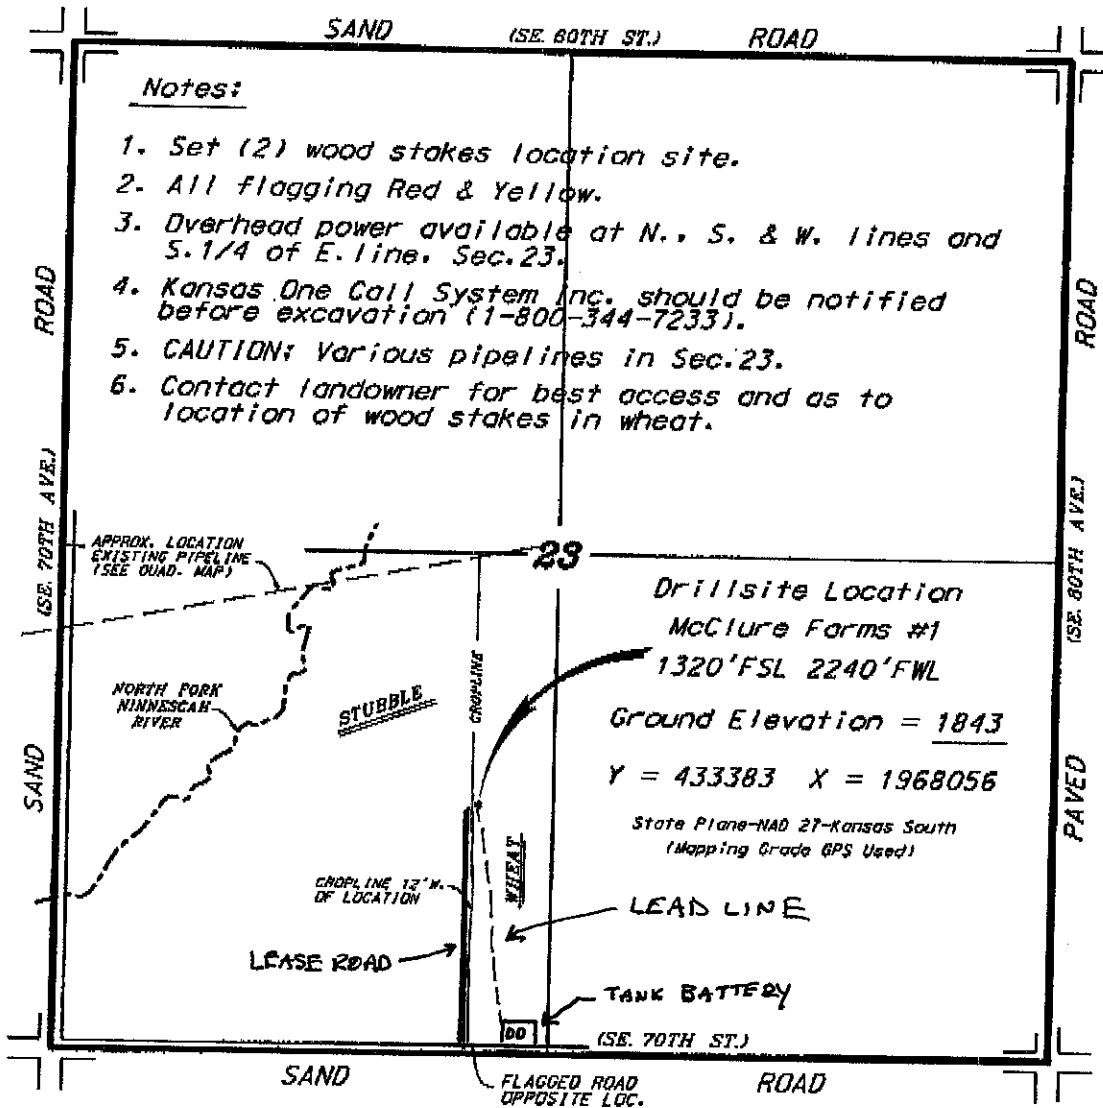 SAND (SE. 60TH ST.) ROAD
Notes:
1. Set (2) wood stakes location site.
2. All flagging Red & Yellow.
3. Overhead power available at N., S. & W. lines and
S. 1/4 of E. line. Sec. 23.
4. Kansas One Call System Inc. should be notified
before excavation (1-800-344-7233).
5. CAUTION: Various pipelines in Sec. 23.
6. Contact landowner for best access and as to
location of wood stakes in wheat.
ROAD
(SE. 70TH AVE.)
SAND
ROAD
(SE. 80TH AVE.)
PAVED
APPROX. LOCATION
EXISTING PIPELINE
(SEE QUAD. MAP)
23
NORTH FORK
NINNESCAH
RIVER
STUBBLE
CROPLINE
Drillsite Location
McClure Farms #1
1320'FSL 2240'FWL
Ground Elevation = 1843
Y = 433383 X = 1968056
State Plane-NAD 27-Kansas South
(Mapping Grade GPS Used)
WHEAT
CROPLINE 12'W.
OF LOCATION
LEAD LINE
LEASE ROAD
TANK BATTERY
(SE. 70TH ST.)
SAND
FLAGGED ROAD
OPPOSITE LOC.
ROAD